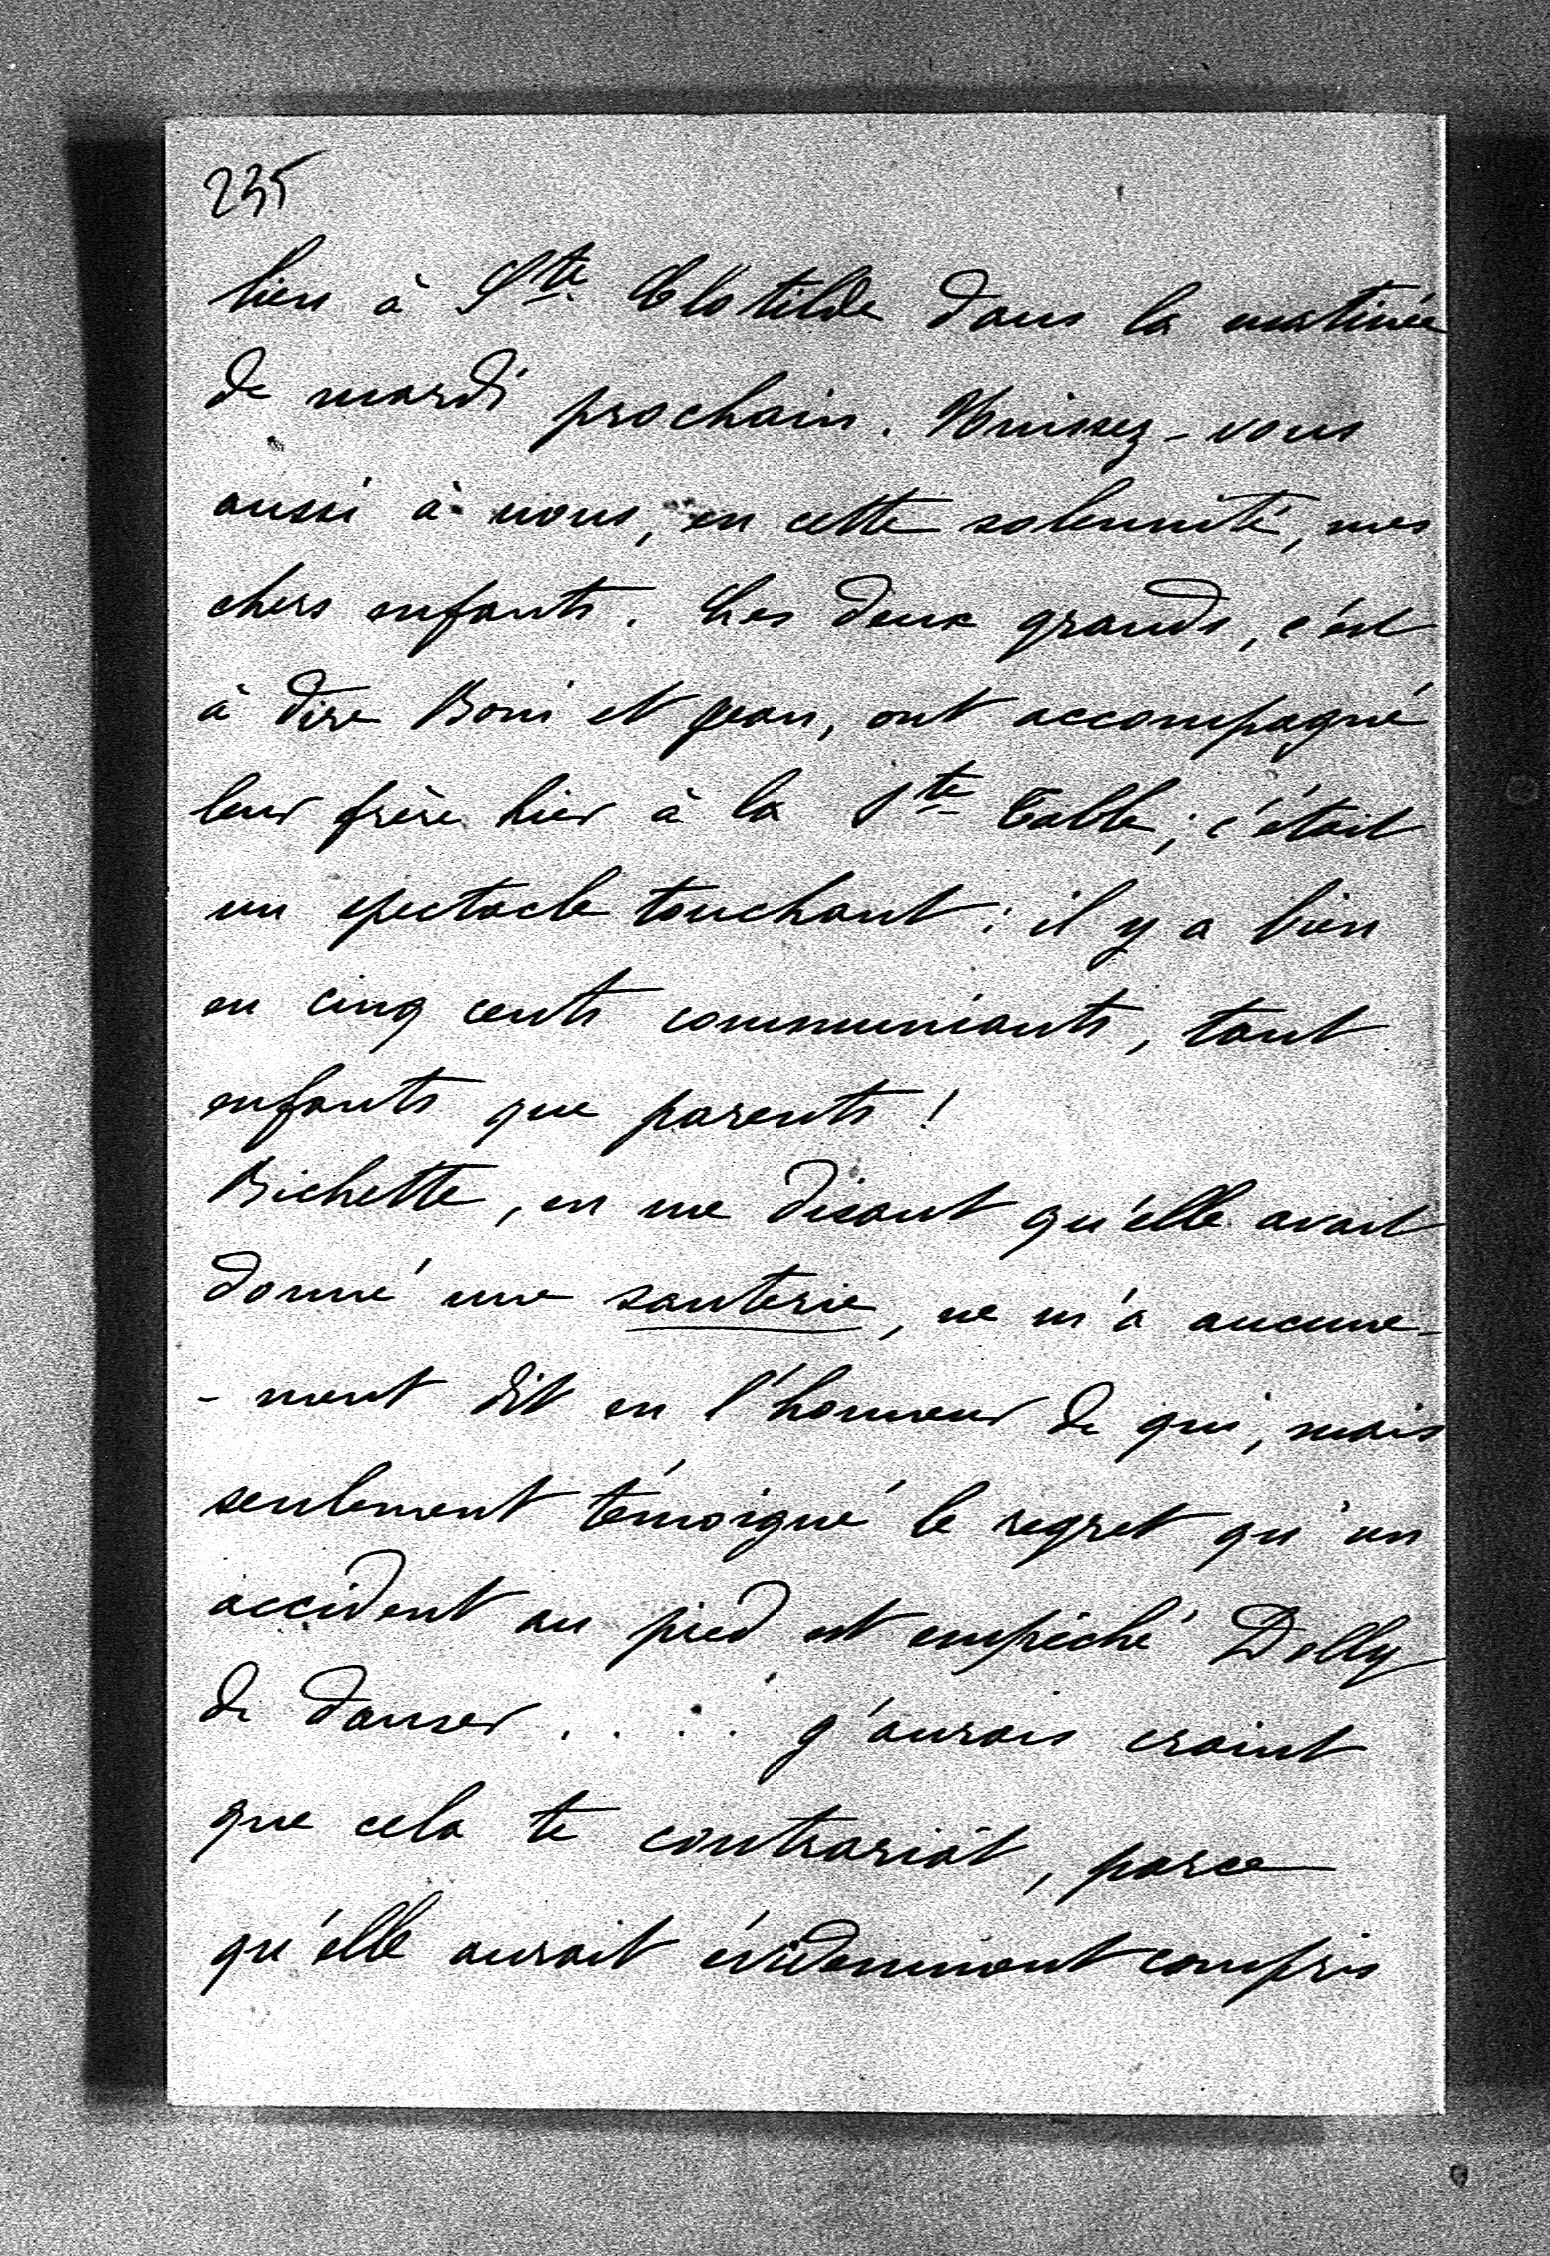 235
lieu à Ste Clotilde dans la matinée
de mardi prochain. Unissez-vous
aussi à nous, en cette solennité, mes
chers enfants. Les deux grands, c'est
à dire Boni et Jean, ont accompagné
leur frère hier à la Ste Table; c'était
un spectacle touchant: il y a bien
eu cinq cents communiants, tant
enfants que parents!
Bichette, en me disant qu'elle avait
donné une sauterie, ne m'a aucune-
-ment dit en l'honneur de qui, mais
seulement témoigné le regret qu'un
accident au pied eut empêché Dolly
de danser.... j'aurais craint
que cela te contrariât, parce
qu'elle aurait évidemment compris